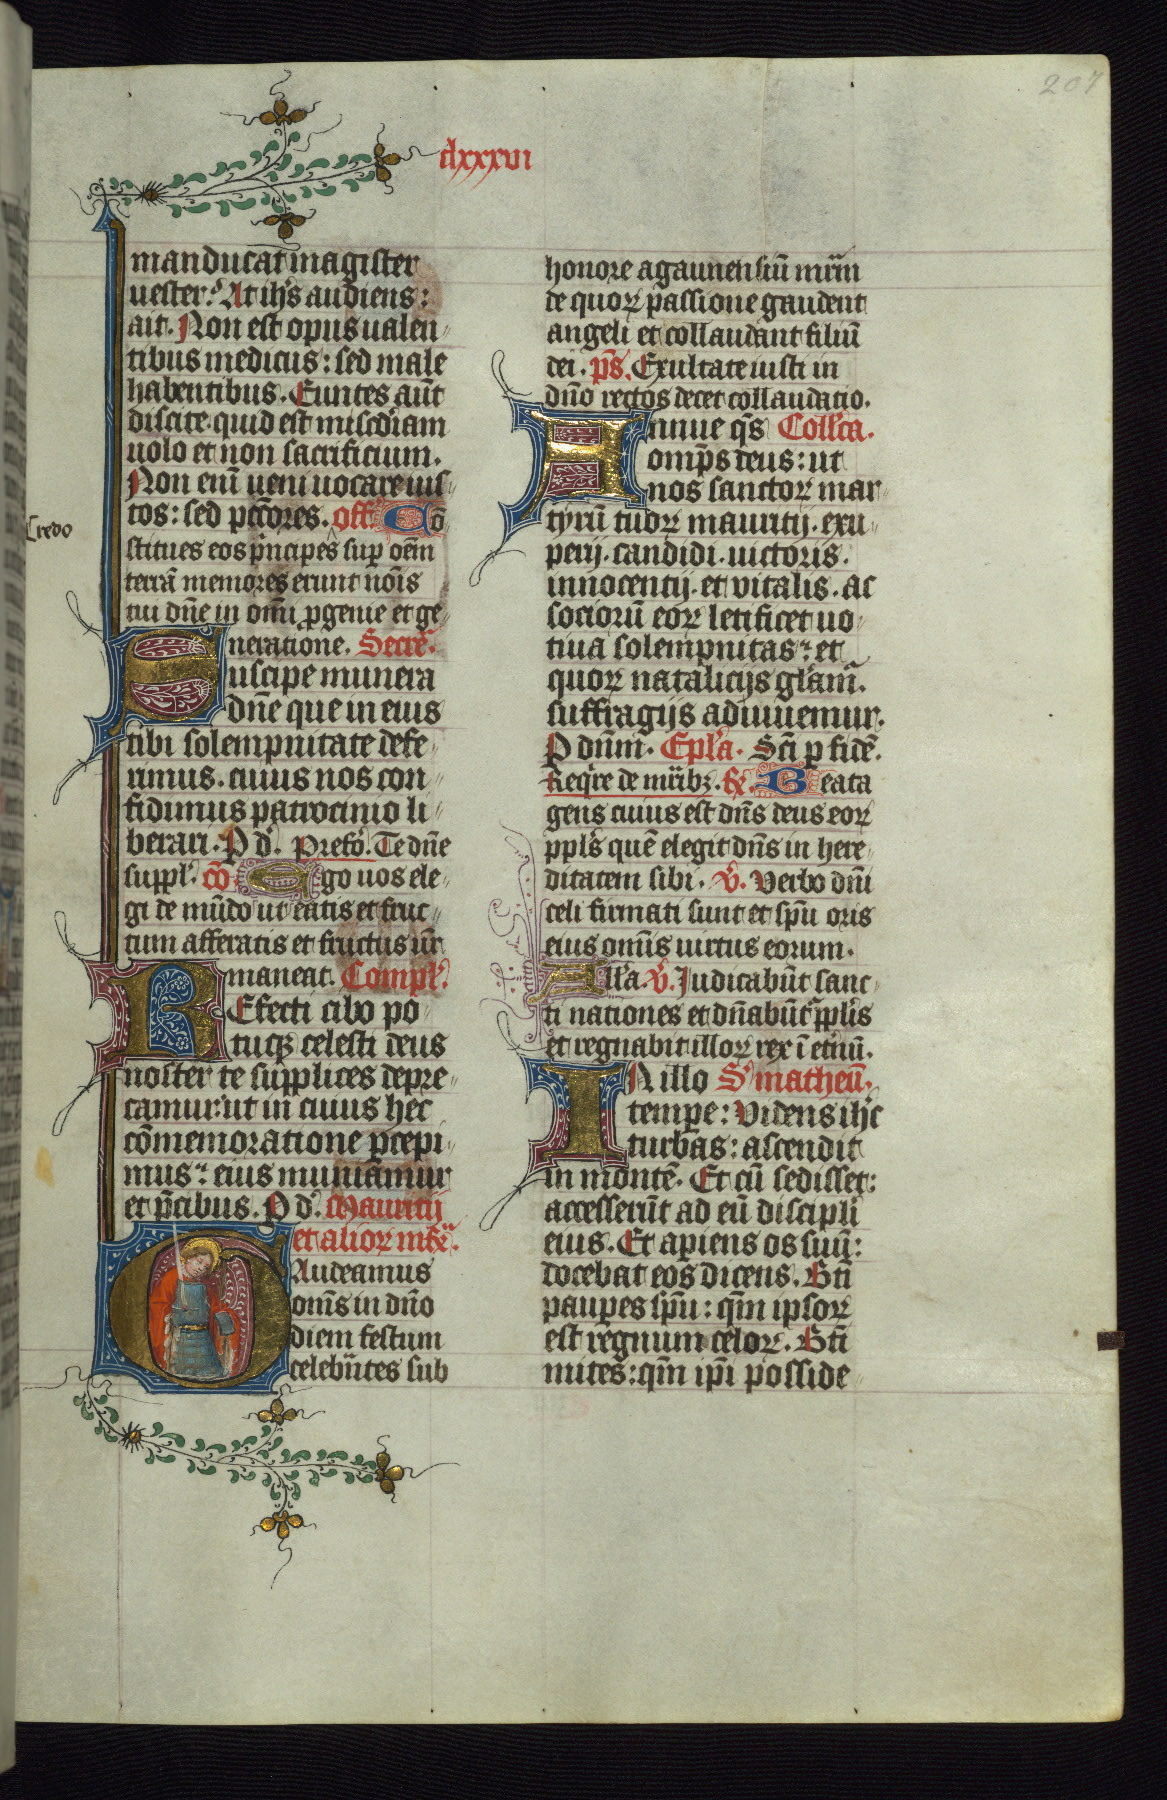 207
clxxxvi
manducat magister
uester? At ih̄s audiens:
ait. Non est opus ualen
tibus medicus: sed male
habentibus. Euntes aūt
discite quid est misc̄diam
uolo et non sacrificium.
Non enī ueni uocare ius
tos: sed pcc̄ores. off̄ Cō
Credo
stitues eos prīncipes sup om̄em
terrā memores erunt noīs
tui dn̄e in omī ꝓgenie et ge
neratione. Secre͂.
Suscipe munera
dn̄e que in eius
tibi solempnitate defe
rimus. cuius nos con
fidimus patrocinio li
berari. P d. Prefō. Te dn̄e
suppl. cō Ego uos ele
gi de mūdo ut eatis et fruc
tum afferatis et fructus ūr
maneat. Compl̄.
REfecti cibo po
tuqꝫ celesti deus
noster te supplices depre
camur: ut in cuius hec
cōmemoratione ꝑcepi
mus: eius muniamur
et p̄cibus. P d. Mauritij
et alioꝝ mr̄.
GAudeamus
oms̄ in dn̄o
diem festum
celebrn̄tes sub
honore agaunensiū mr̄m
de quoꝝ passione gaudent
angeli et collaudant filiū
dei. ps̄. Exultate iusti in
dn̄o rectos decet collaudatio.
Annue qs̄ Coll̄ca.
omp̄s deus: ut
nos sanctoꝝ mar
tyrū tuoꝝ mauritij. exu
perij. candidi. uictoris.
innocentij. et vitalis. ac
sociorū eoꝝ letificet uo
tiua solempnitas: et
quoꝝ natalicijs gl̄am̄.
suffragijs adiuuemur.
P dn̄m. Epl̄a. Sc̄i p fidē.
Reqr̄e de mr̄ibꝫ. R̄. Beata
gens cuius est dn̄s deus eoꝝ
ppl̄s quē elegit dn̄s in here
ditatem sibi. v̄. Verbo dn̄i
celi firmati sunt et sp̄u oris
eius omīs uirtus eorum.
All̄a. v̄. Judicabūt sanc
ti nationes et dn̄abūt̄ ppl̄is
et regnabit illoꝝ rex ī et̄nū.
IN illo S matheū.
tempe: Videns ih̄c
turbas: ascendit
in montē. Et cū sedisset:
accesserūt ad eū discipli
eius. Et apiens os suū:
docebat eos dicens. Bt̄i
paupes sp̄u: qm̄ ipsoꝝ
est regnum celoꝝ. Bt̄i
mites: qm̄ ip̄i posside